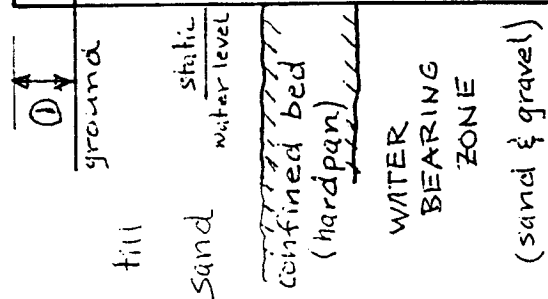 ①
ground
till
static
water level
sand
confined bed
(hardpan)
WATER
BEARING
ZONE
(sand & gravel)